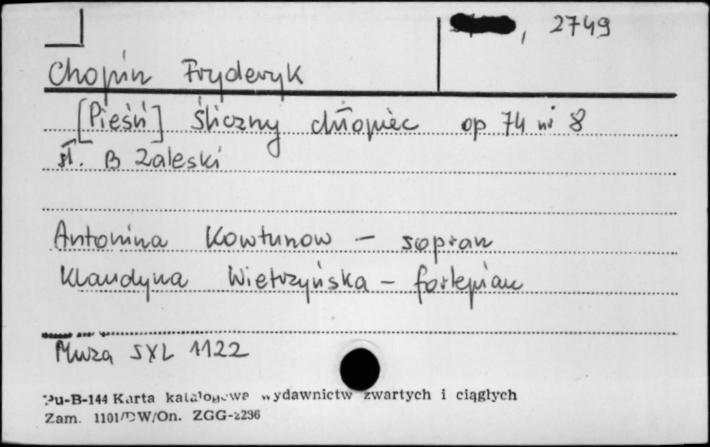 , 2749
Chopin Fryderyk
[Pieśń] Śliczny chłopiec op 74 nr 8
sł. B Zaleski
Antonina Kowtunow – sopran
Klaudyna Wietrzyńska – fortepian
Muza SXL 1122
Pu-B-144 Karta katalogowa wydawnictw zwartych i ciągłych
Zam. 1101/DW/On. ZGG-2236